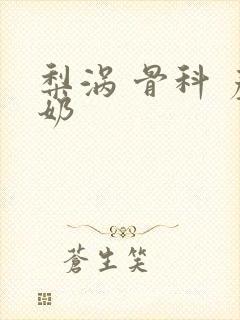 梨涡 骨科
奶
蒼生笑